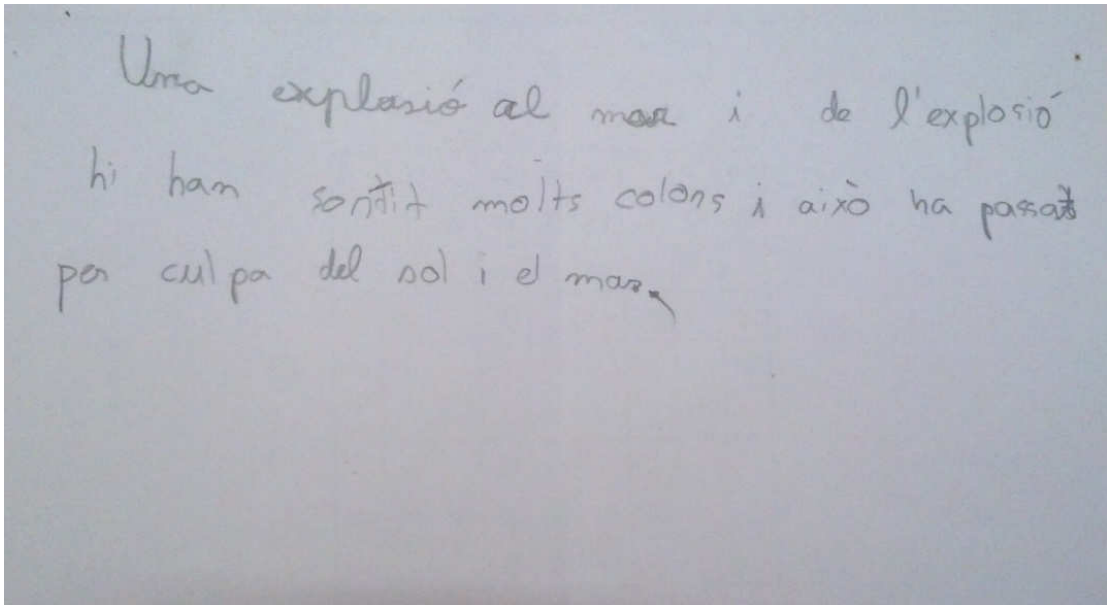 Una explosió al mar i de l'explosió
hi han sortit molts colors i això ha passat
per culpa del sol i el mar.